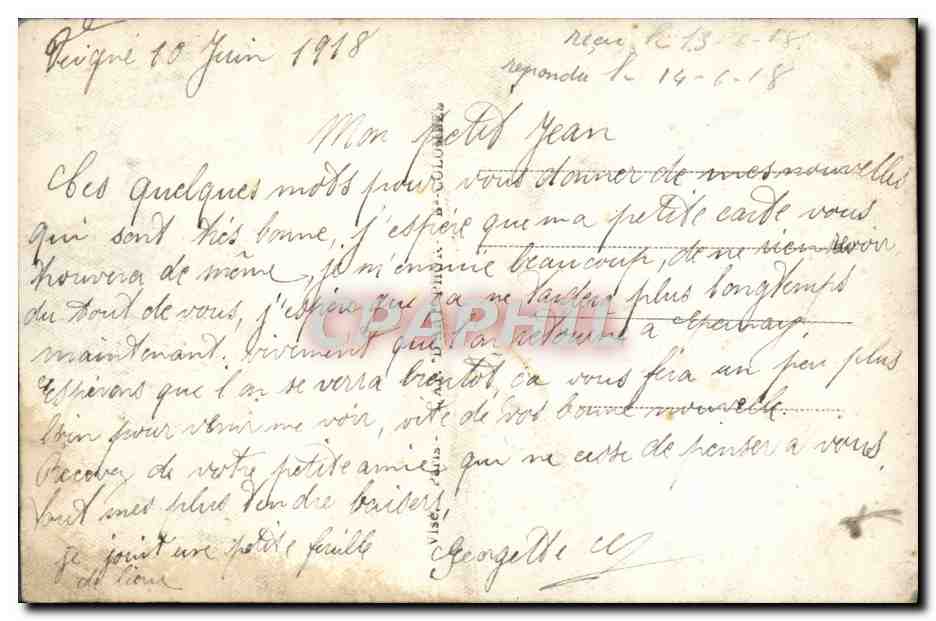 Veigné 10 Juin 1918
reçu le 13-6-18.
repondu le 14-6-18
Mon petit Jean
Ces quelques mots pour vous donner de mes nouvelles
qui sont trés bonne, j'espère que ma petite carte vous
trouvera de même, je m'ennuie beaucoup, de ne rien revoir
du tout de vous, j'espère que ça ne tardera plus longtemps
maintenant. vivement que l'on retourne a Epernay
Espérons que l'on se verra bientot, ça vous fera un peu plus
loin pour venir me voir, vite de vos bonne nouvelle.
Recever de votre petite amie, qui ne cesse de penser a vous,
tout mes plus tendre baisers,
Georgette
je joint une petite feuille
de lierre
CPAPHIL
Visé Paris
COLOMBES